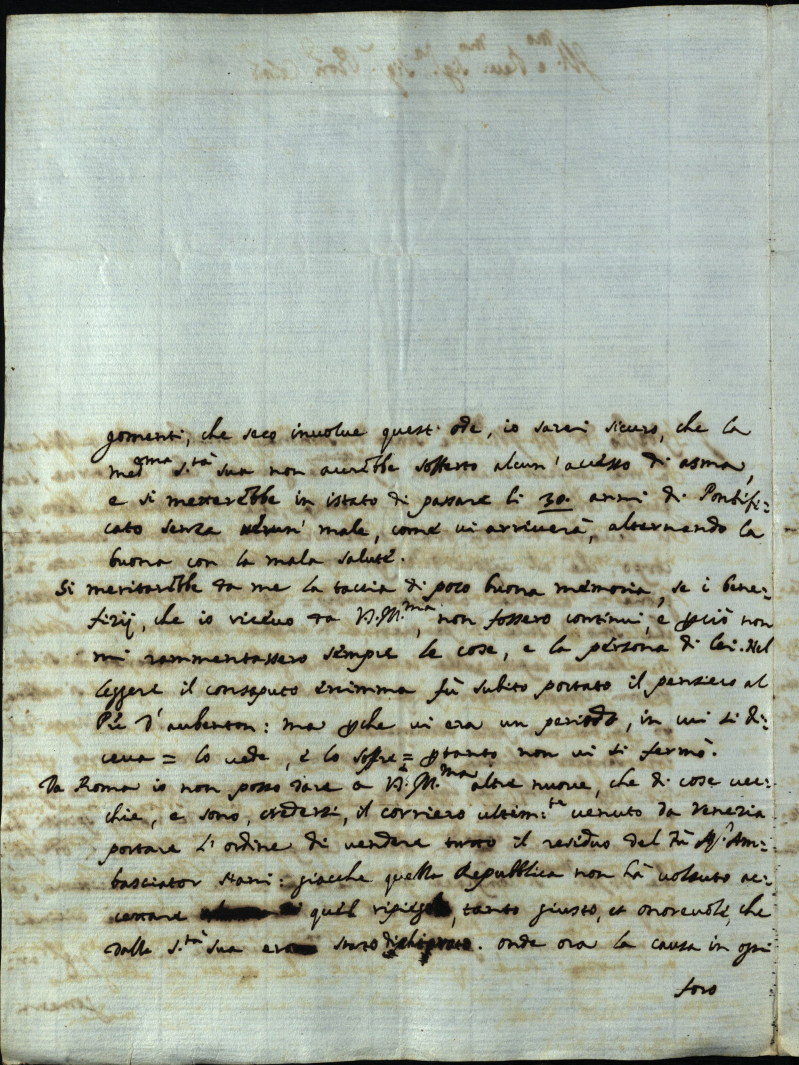 gomenti, che seco involve quest' ode, io sarei sicuro, che la
med.ma S.tà sua non averebbe sofferto alcun' accesso di asma,
e si metterebbe in istato di passare li 30. anni di Pontifi=
cato senza alcun' male, come vi arriverà, alternando la
buona con la mala salute.
Si meritarebbe da me la taccia di poco buona memoria, se i bene=
fizij, che io ricevo da V.S.Ill.ma, non fossero continui, e perciò non
mi rammentassero sempre le cose, e la persona di lei. Nel
leggere il consaputo enimma fù subito portato il pensiero al
P.re d'aubenton: ma perche vi era un periodo, in cui si di=
ceva = lo vede, e lo soffre = pertanto non vi si fermò.
Da Roma io non posso dare a V.S.Ill.ma altre nuove, che di cose vec=
chie, e sono, credersi, il corriero ultim:te venuto da Venezia
portare l'ordine di vendere tutto il residuo del fù Sig.r Am=
basciator : giacche quella Repubblica non hà voluto ac=
cettare quel ripiego, tanto giusto, et onorevole, che
dalla S.tà sua era stato . onde ora la causa in ogni
foro